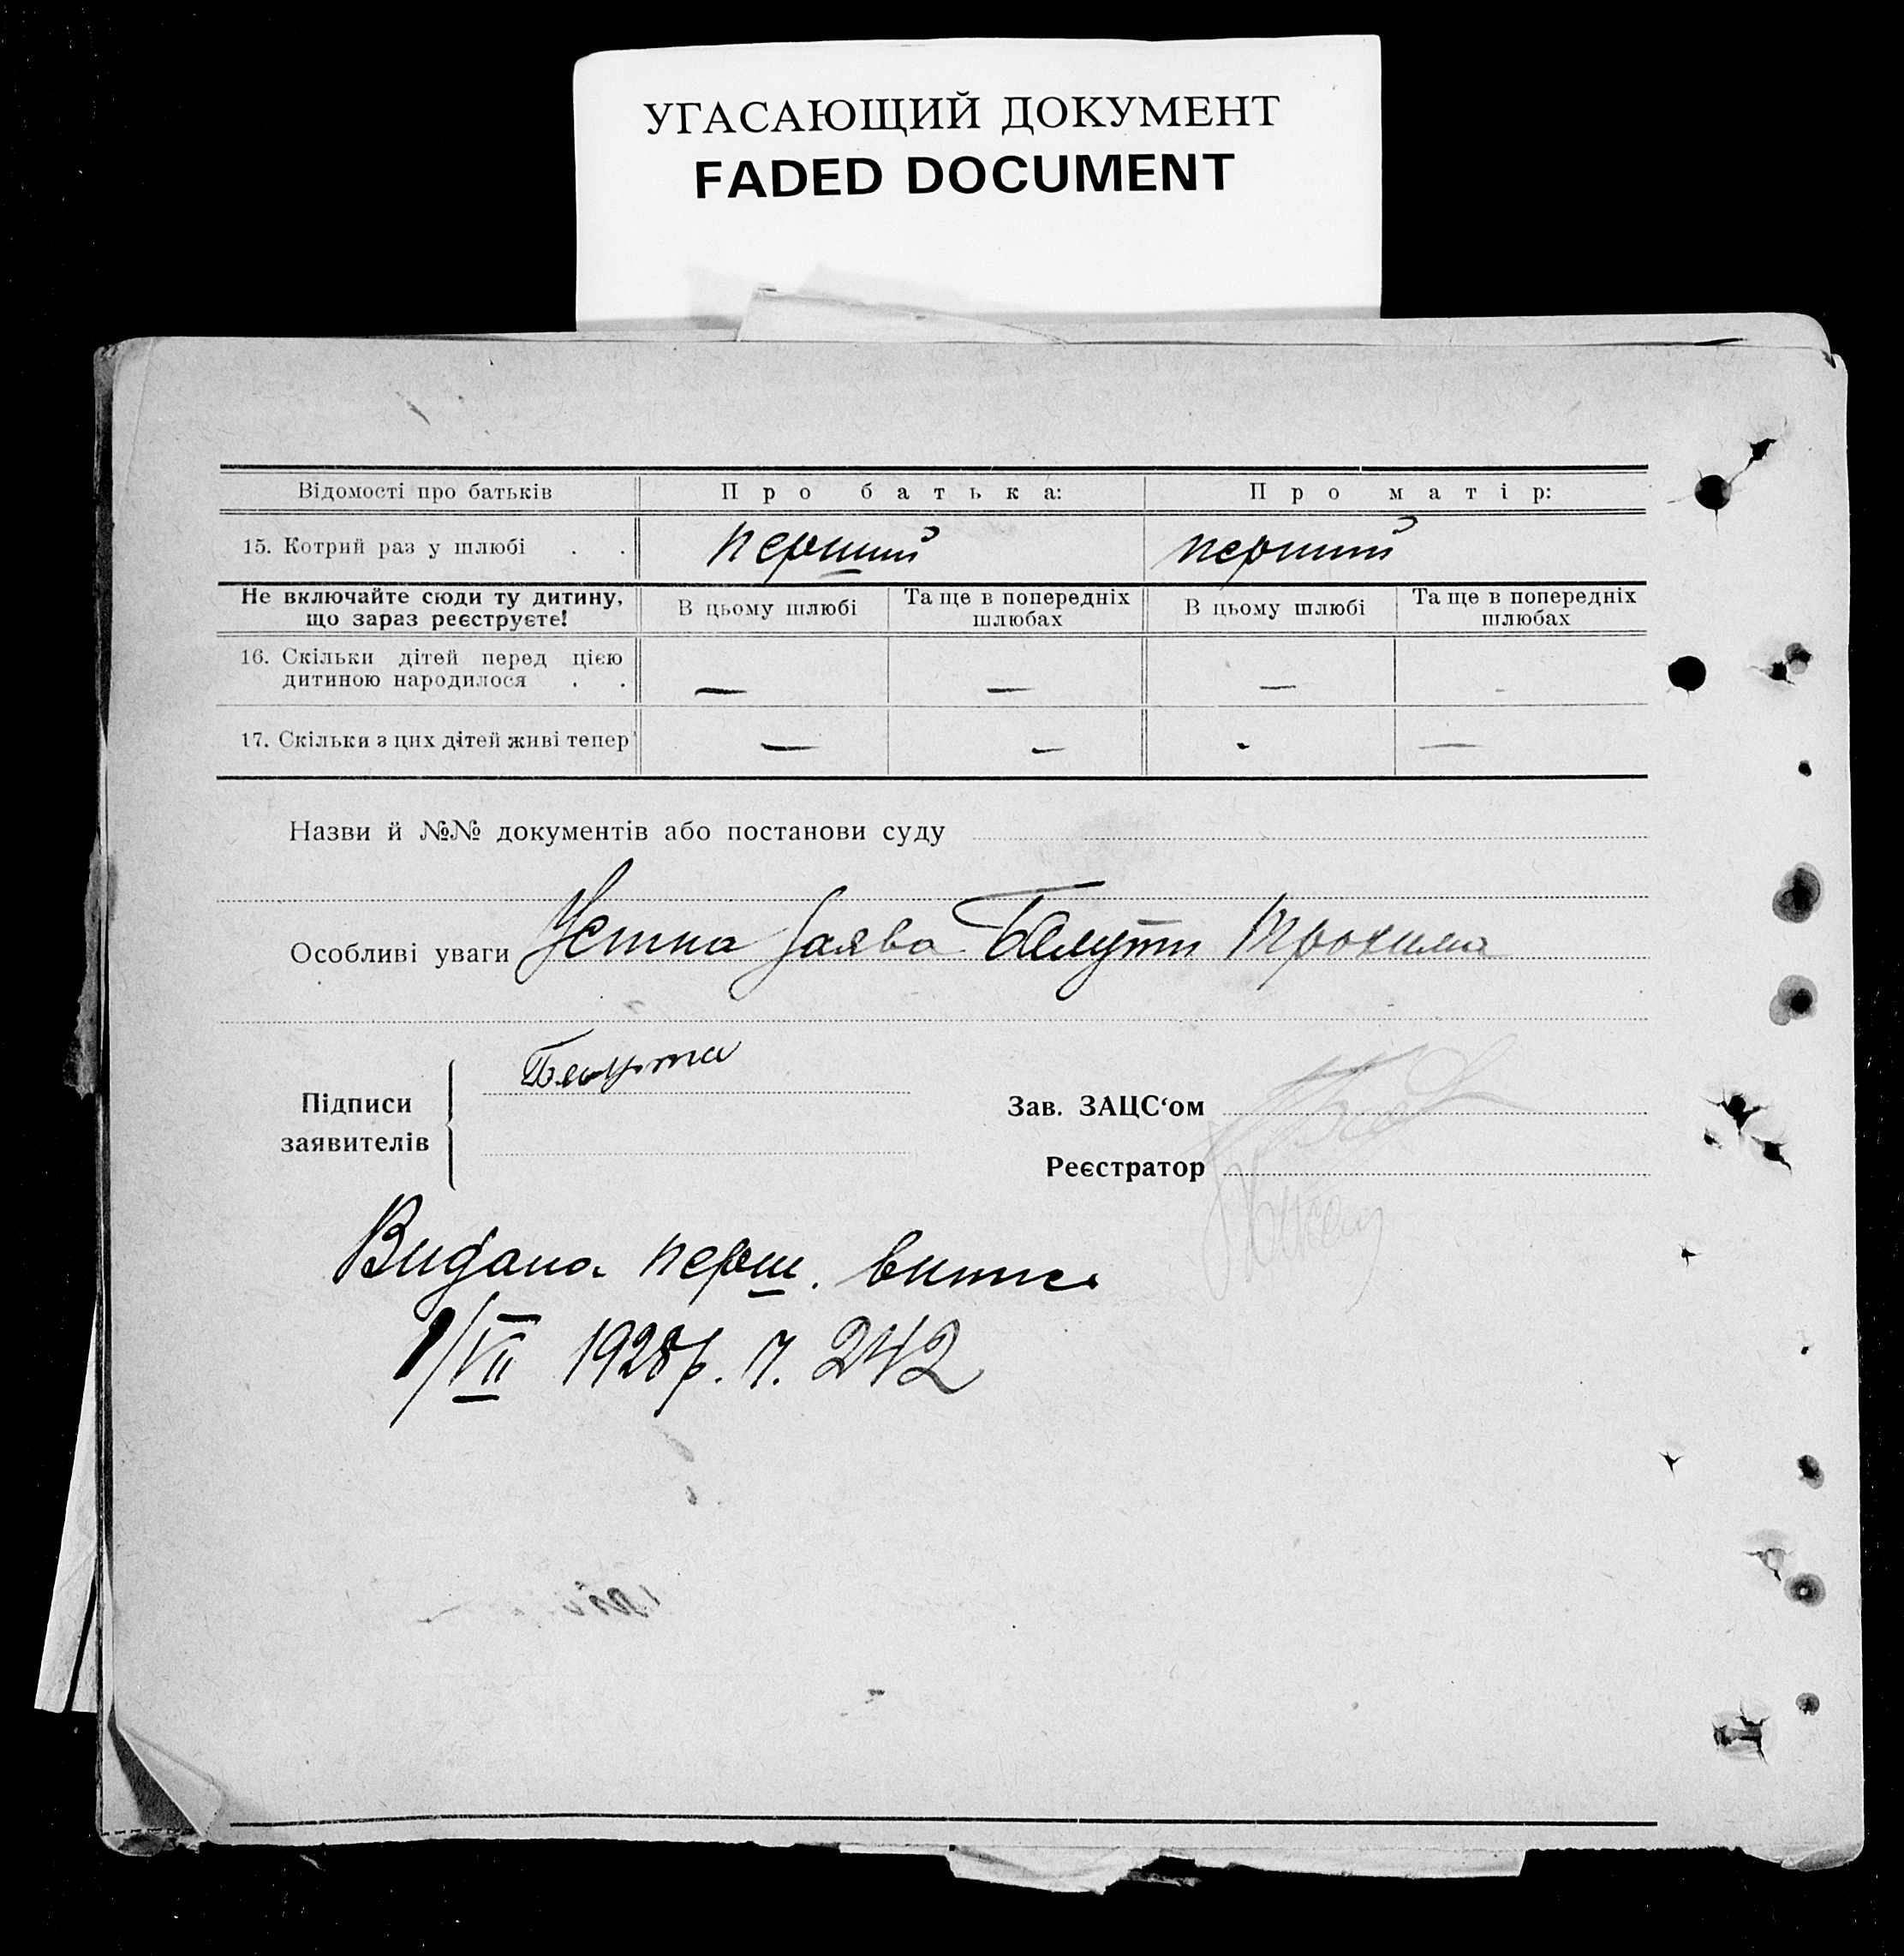 УГАСАЮЩИЙ ДОКУМЕНТ
FADED DOCUMENT
Відомості про батьків Про батька: Про матір:
15. Котрий раз у шлюбі . . перший перший
Не включайте сюди ту дитину, що зараз реєструєте! В цьому шлюбі Та ще в попередніх шлюбах В цьому шлюбі Та ще в попередніх шлюбах
16. Скільки дітей перед цією дитиною народилося . . — — — -
17. Скільки з цих дітей живі тепер — — - —
Назви й №№ документів або постанови суду
Особливі уваги Устна заява Трохима
Підписи заявителів
Зав. ЗАЦС‘ом
Реєстратор
Видана перш. випис
1/VII 1928р. ч. 242